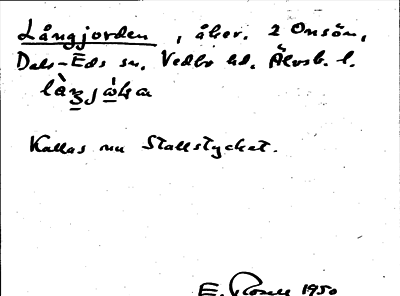 Långjorden, åker. 2 Onsön,
Dals-Eds sn. Vedbo hd. Älvsb. l.
Kallas nu Stallstycket.
E. Rosell 1950